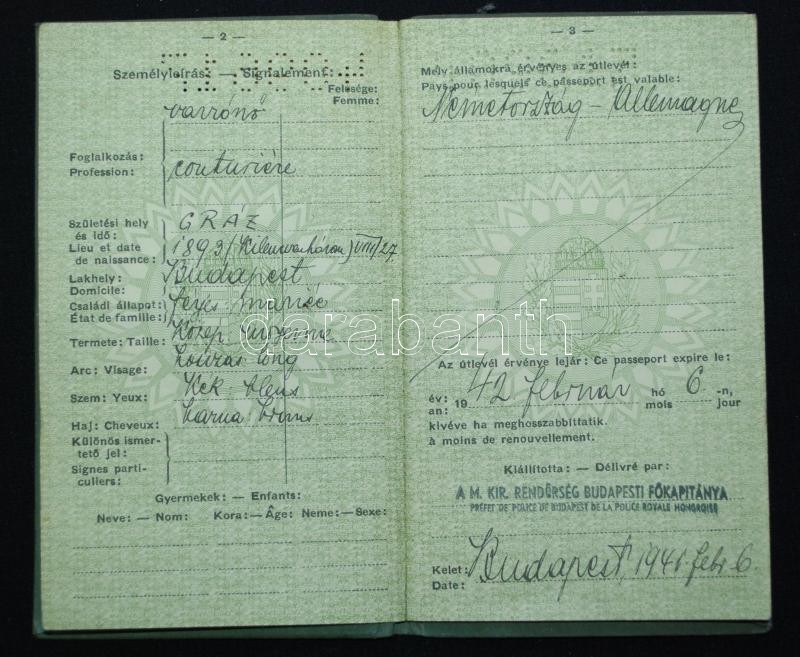 — 2 —
Személyleírás: — Signalement:
Felesége:
Femme:
varrónő
Foglalkozás:
Profession:
couturière
Születési hely
és idő:
Lieu et date
de naissance:
GRÁZ
1893 VIII/27
Lakhely:
Domicile:
Budapest
Családi állapot:
État de famille:
férjes mariée
Termete: Taille:
közép moyenne
Arc: Visage:
hosszas long
Szem: Yeux:
kék bleus
Haj: Cheveux:
barna bruns
Különös ismer-
tető jel:
Signes parti-
culiers:
Gyermekek: — Enfants:
Neve: — Nom: Kora: — Âge: Neme: — Sexe:
— 3 —
Mely államokra érvényes az útlevél:
Pays pour lesquels ce passeport est valable:
Németország – Allemagne
Az útlevél érvénye lejár: Ce passeport expire le:
év: 1942 február hó 6 -n,
an: mois jour
kivéve ha meghosszabbíttatik.
à moins de renouvellement.
Kiállította: — Délivré par:
A M. KIR. RENDŐRSÉG BUDAPESTI FŐKAPITÁNYA
PRÉFET DE POLICE DE BUDAPEST DE LA POLICE ROYALE HONGROISE
Kelet:
Date:
Budapest, 1941 febr 6.
darabanth